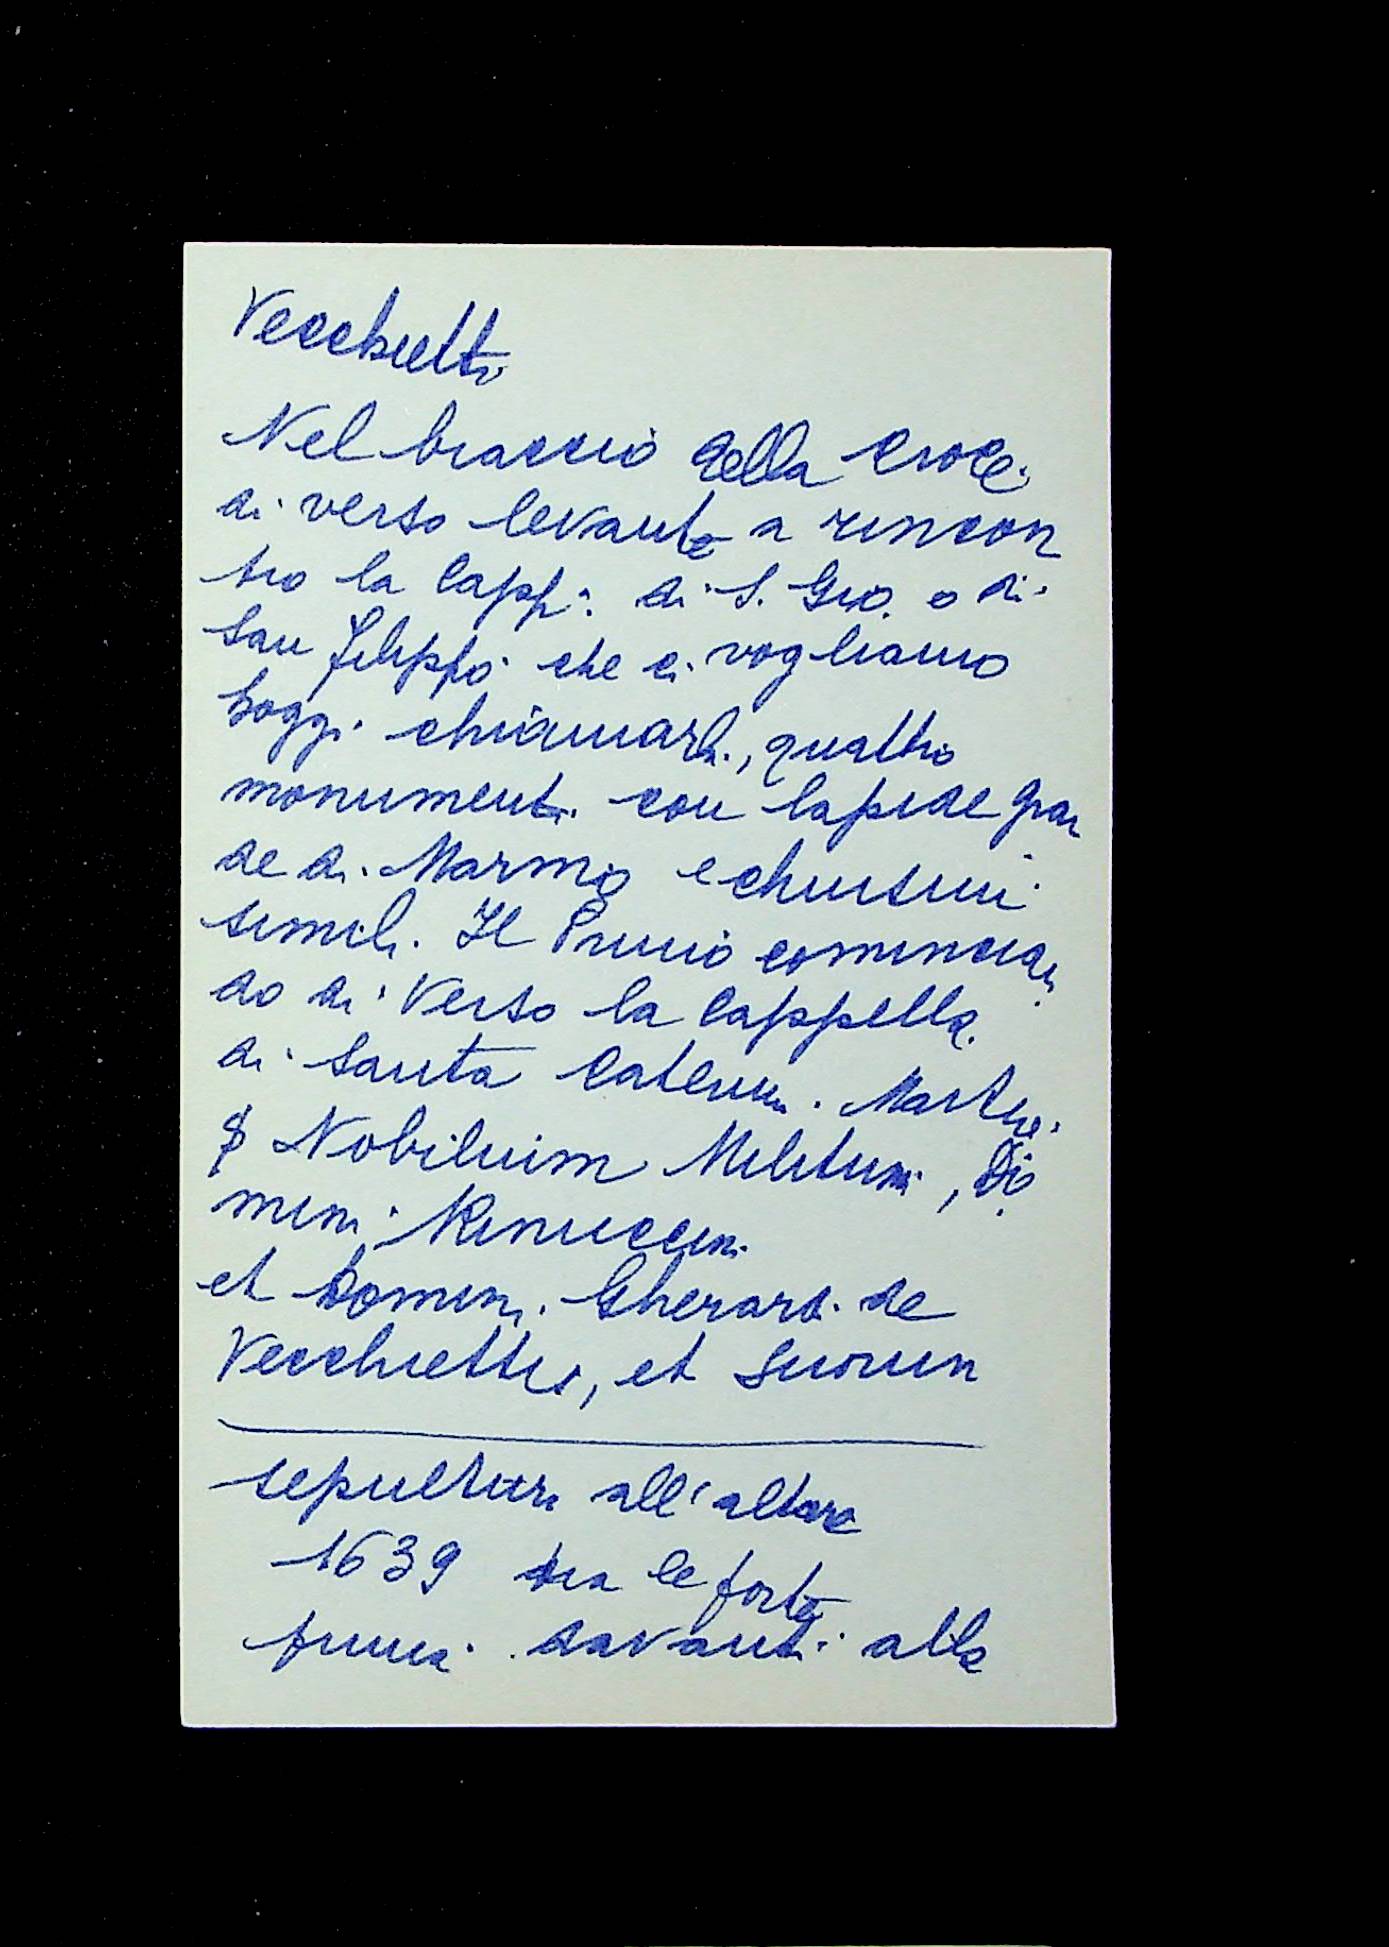 Vecchietti
Nel braccio della Croce
di verso levante a rincon
tro la Capp.a di S. Gio. o di
San Filippo che ci vogliamo
hoggi chiamarli, quattro
monumenti con lapide gran
de di Marmo e chiusini
simili. Il Primo comincian
do di verso la Cappella
di Santa Caterina. Martire
S Nobilium Militum, Do
mini Rinuccini
et Domini Gherardi de
Vecchiettis, et Suorum
sepolture all'altare
1639 tra le
davanti alla